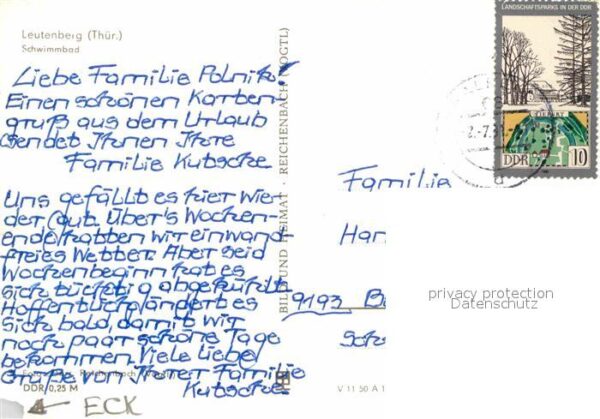 Leutenberg (Thür.)
Schwimmbad
Liebe Familie Polnik!
Einen schönen Karten-
gruß aus dem Urlaub
sendet Ihnen Ihre
Familie Kutsche
Uns gefällt es hier wie-
der gut. Über's Wochen-
ende hatten wir einwand-
freies Wetter. Aber seid
Wochenbeginn hat es
sich tüchtig abgekühlt
Hoffentlich ändert es
sich bald, damit wir
noch paar schöne Tage
bekommen. Viele liebe
Grüße von Ihrer Familie
Kutsche
DDR 0,25 M
ECK
BILD UND HEIMAT · REICHENBACH (VOGTL)
V 11 50 A 1
LANDSCHAFTSPARKS IN DER DDR
DDR
10
Familie
Han
9193
privacy protection
Datenschutz